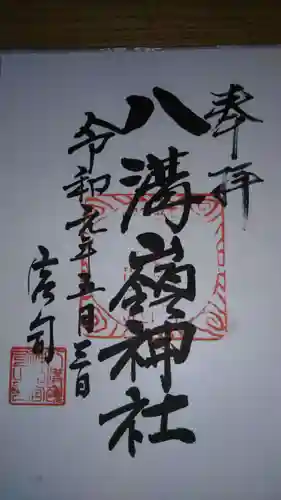 奉拝
八溝嶺神社
令和元年五月三日
宮司